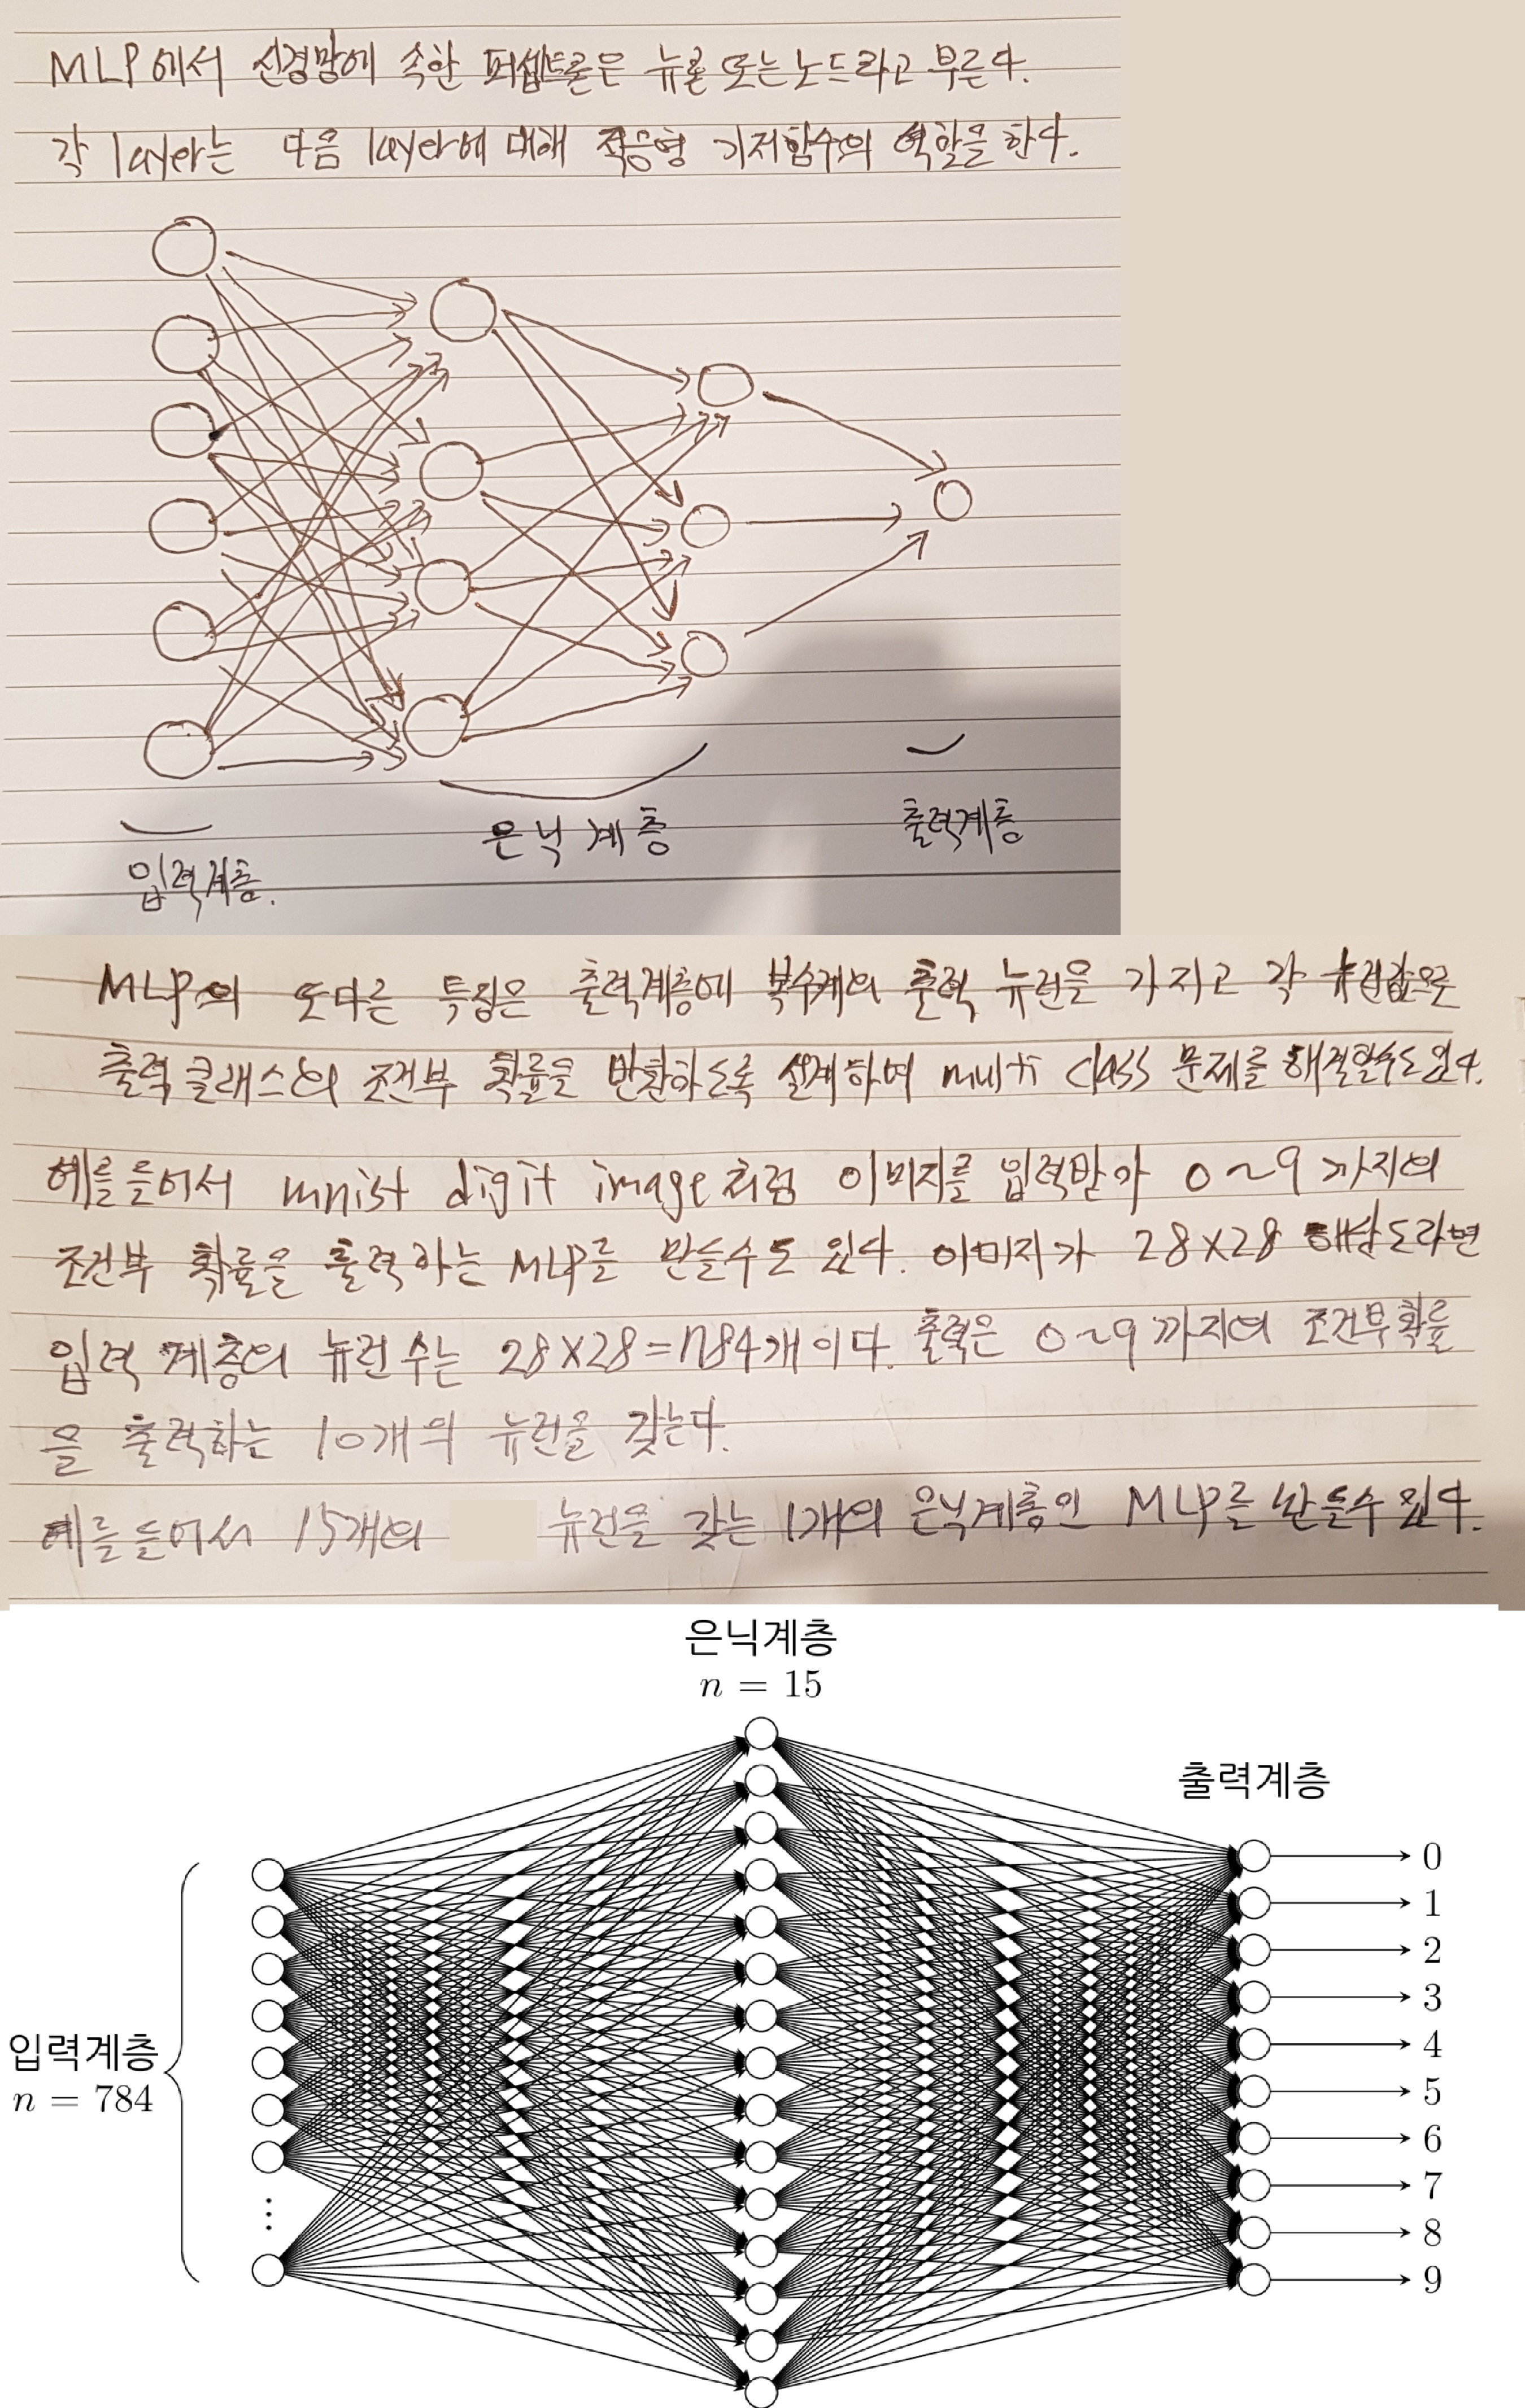 MLP에서 신경망에 속한 퍼셉트론은 뉴론 또는 노드라고 부른다.
각 layer는 다음 layer에 대해 적응형 기저함수의 역할을 한다.
입력계층.
은닉 계층
출력계층
MLP의 또다른 특징은 출력계층에 복수개의 출력 뉴런을 가지고 각
출력 클래스의 조건부 확률을 반환하도록 설계하여 multi class 문제를 해결할수도 있다.
예를들어서 mnist digit image처럼 이미지를 입력받아 0~9 까지의
조건부 확률을 출력하는 MLP를 만들수도 있다. 이미지가 28×28 해상도라면
입력 계층의 뉴런 수는 28×28=784개 이다. 출력은 0~9 까지의 조건부확률
을 출력하는 10개의 뉴런을 갖는다.
예를들어서 15개의 뉴런을 갖는 1개의 은닉계층인 MLP를 만들수 있다.
은닉계층
n = 15
출력계층
0
1
2
3
입력계층
n = 784
4
5
6
7
8
9